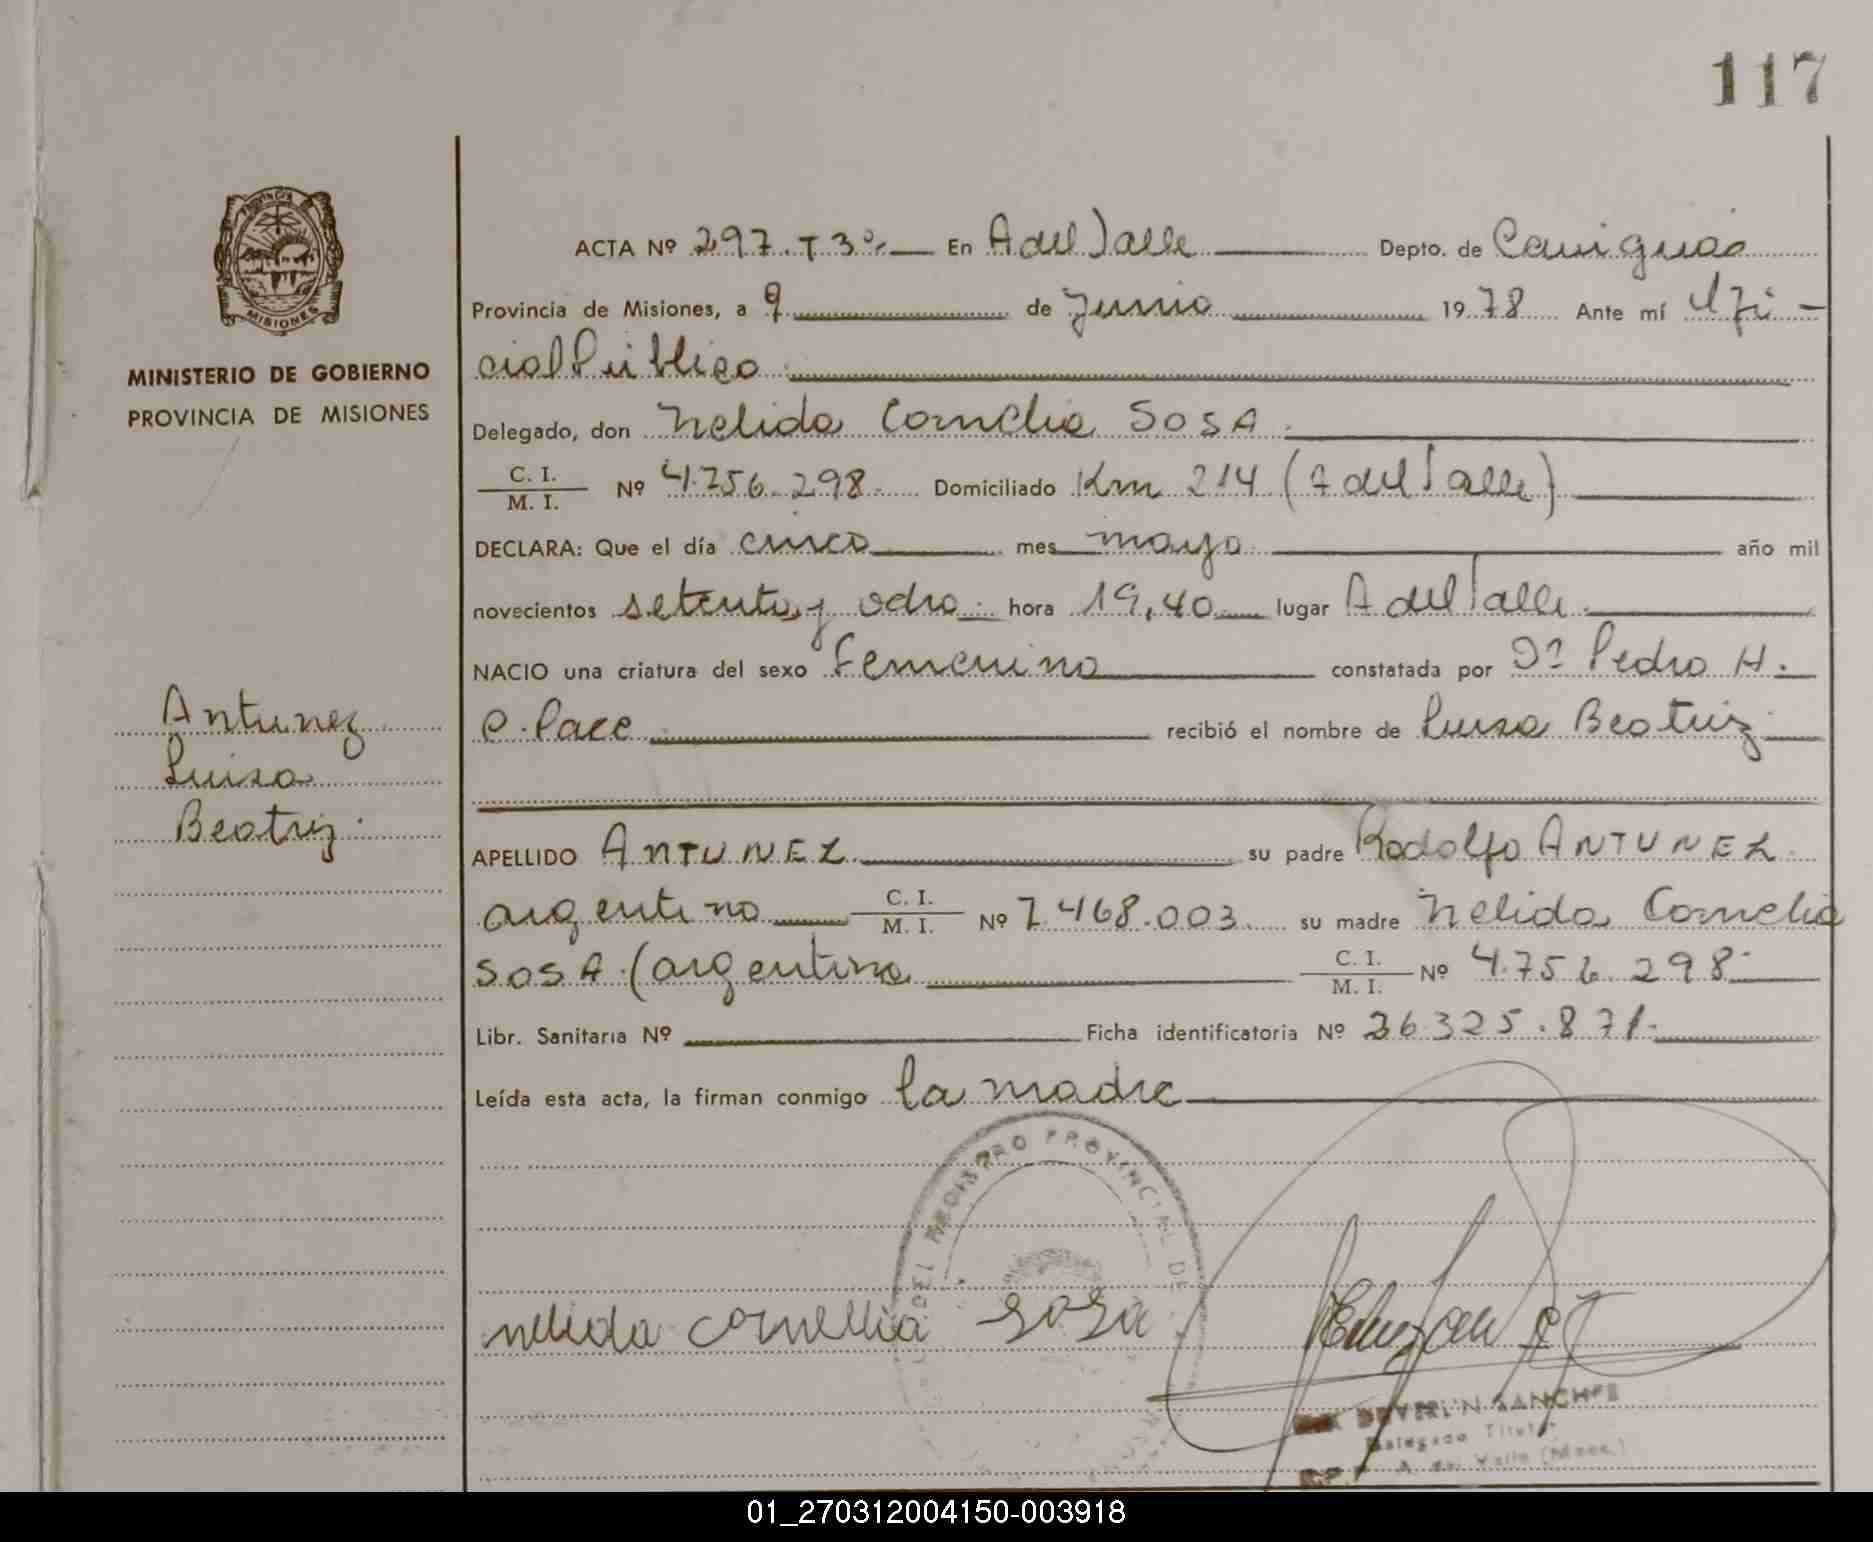 117
MISIONES
MINISTERIO DE GOBIERNO
PROVINCIA DE MISIONES
Antunez
Luisa
Beatriz.
ACTA Nº 297. T 3º En A del Valle Depto. de Cainguás
Provincia de Misiones, a 9 de Junio 1978 Ante mí Ofi-
cial Público
Delegado, don Nelida Cornelia SOSA.
C. I. / M. I. Nº 4.756.298. Domiciliado Km 214 (A del Valle)
DECLARA: Que el día cinco mes mayo año mil
novecientos setenta y ocho. hora 19,40 lugar A del Valle.
NACIO una criatura del sexo femenino constatada por Dº Pedro H.
C. Pace recibió el nombre de Luisa Beatriz
APELLIDO ANTUNEZ su padre Rodolfo ANTUNEZ.
argentino C. I. / M. I. Nº 7.468.003. su madre Nelida Cornelia
SOSA. (argentina C. I. / M. I. Nº 4.756.298.
Libr. Sanitaria Nº Ficha identificatoria Nº 26.325.871.
Leída esta acta, la firman conmigo la madre
REGISTRO PROVINCIAL DE
nelida cornellia sosa
SANCHEZ
Delegado Titular
A. del Valle
01_270312004150-003918